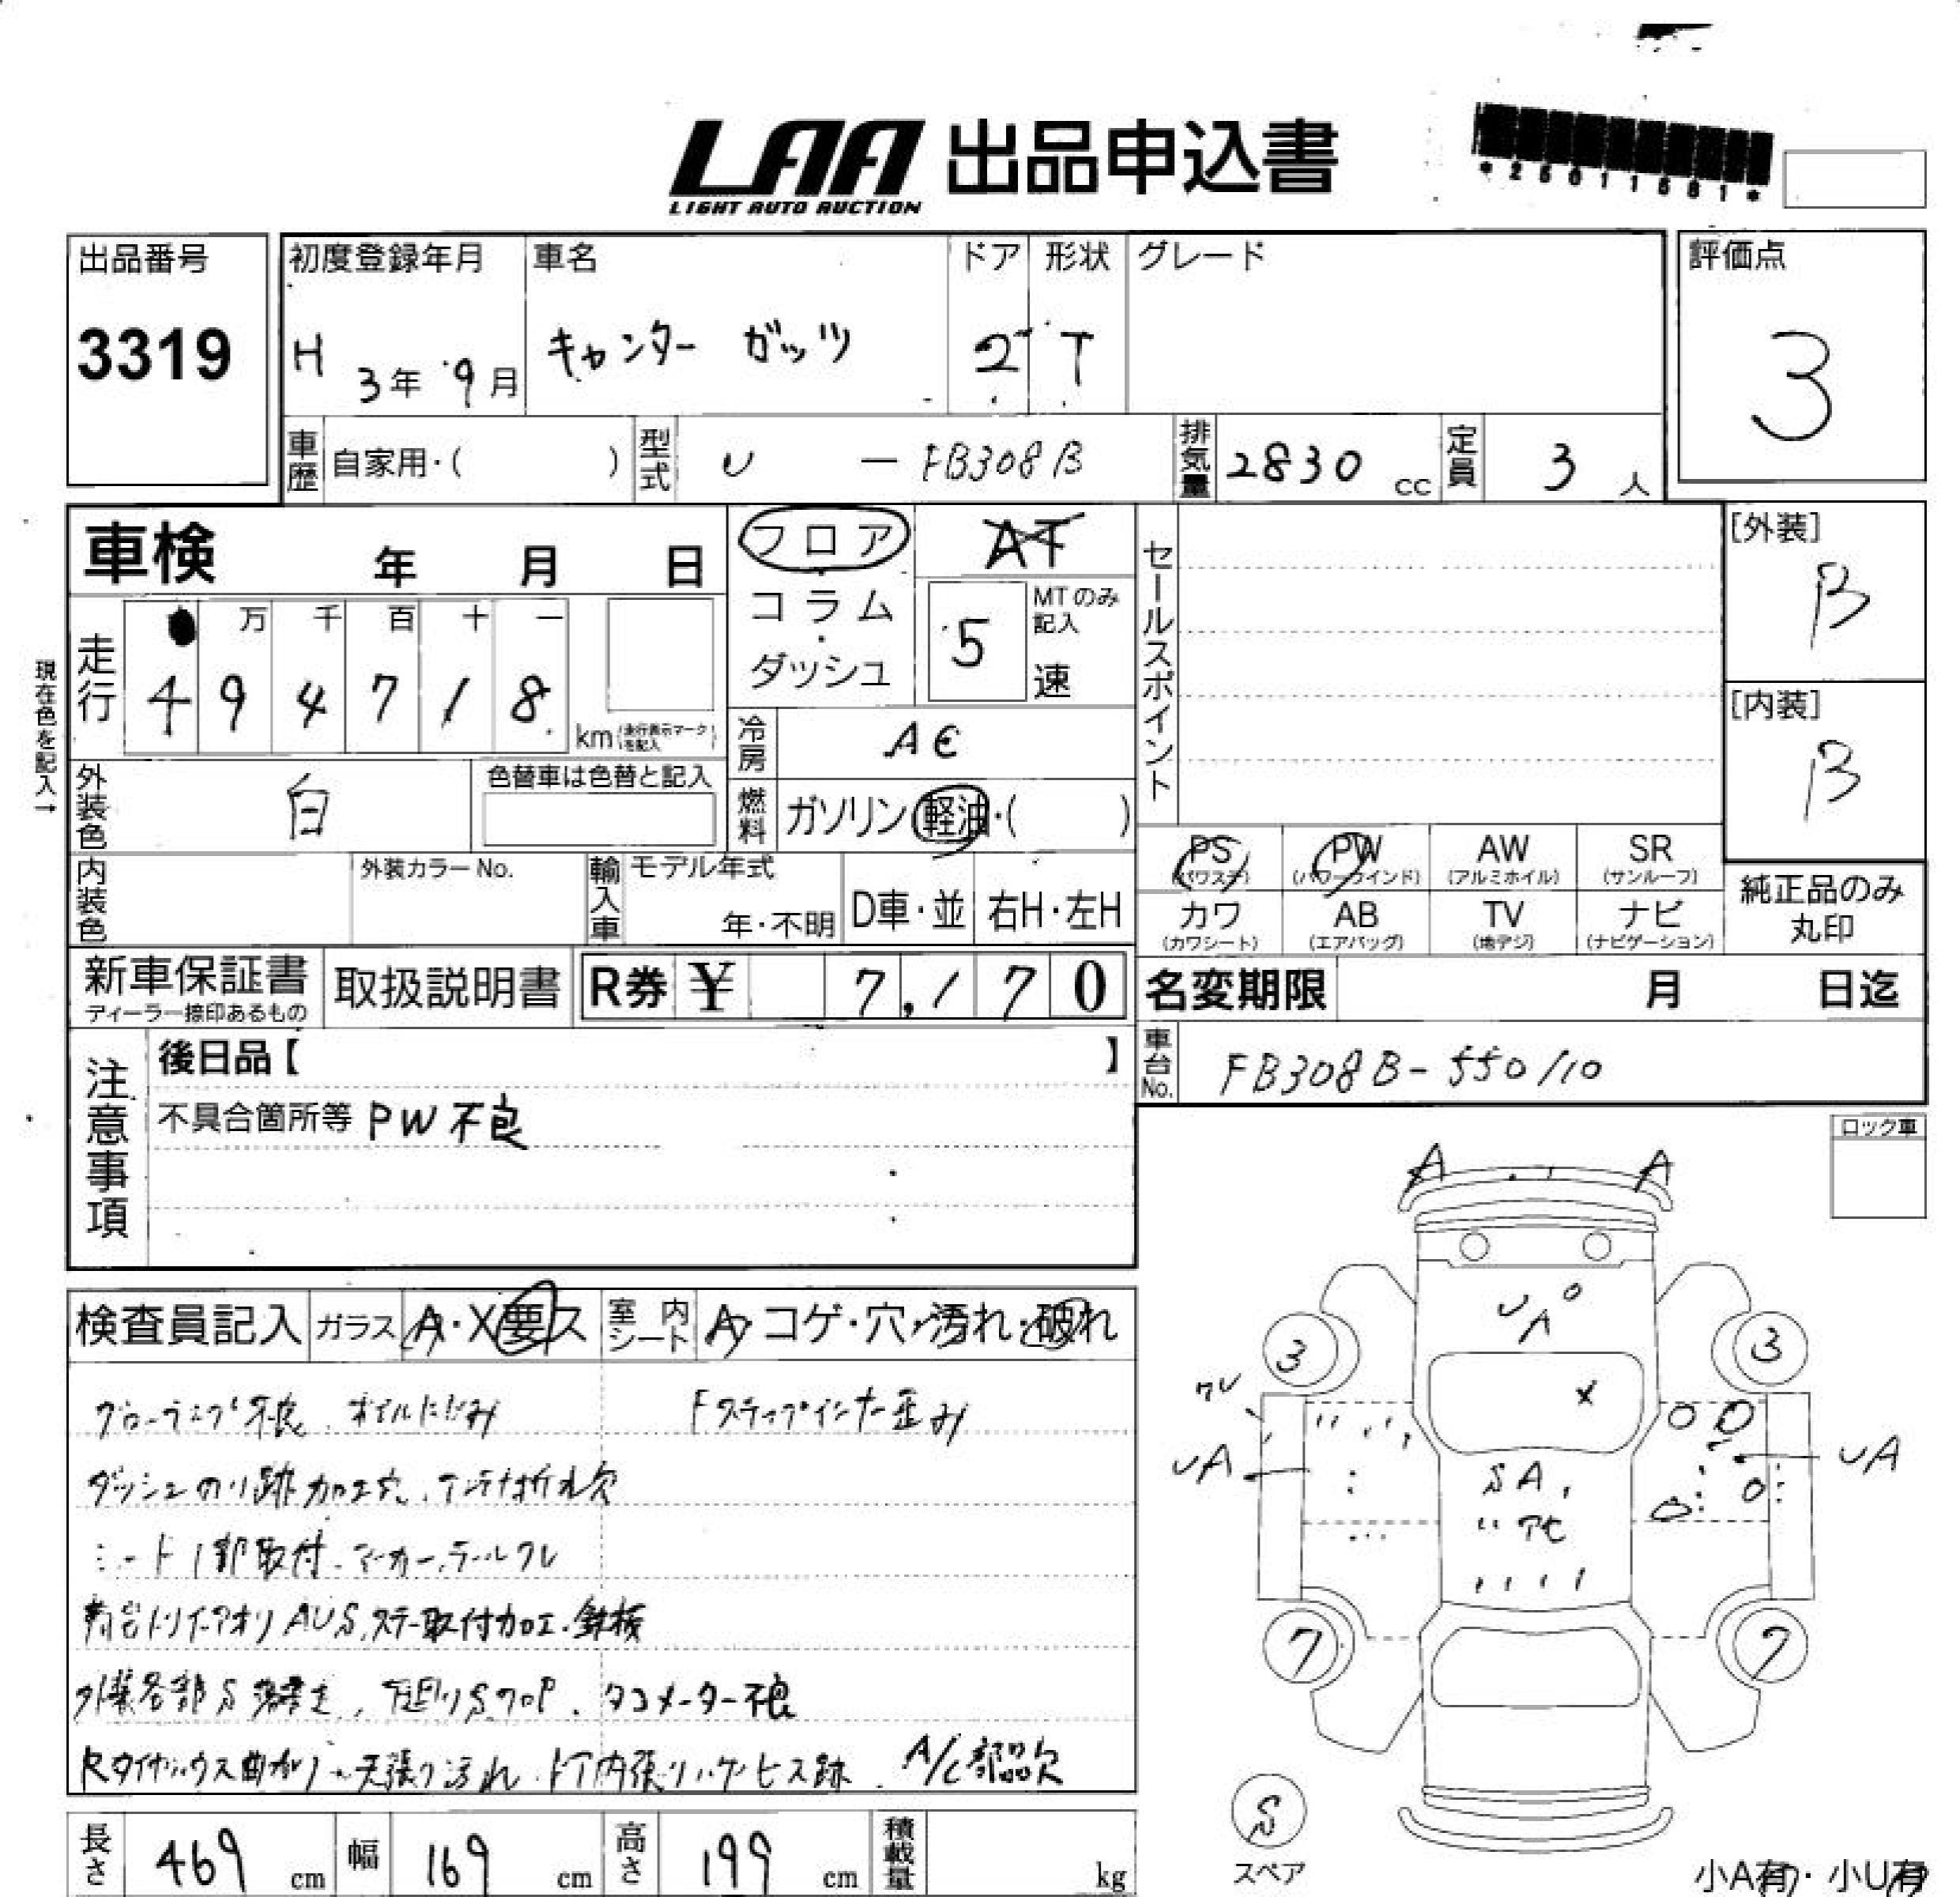 LAA 出品申込書
LIGHT AUTO AUCTION
*25011681*
出品番号 初度登録年月 車名 ドア 形状 グレード 評価点
3319 H 3年 9月 キャンター ガッツ 2 T 3
車歴 自家用・( ) 型式 U — FB308B 排気量 2830 cc 定員 3 人
車検 年 月 日 フロア AT セールスポイント [外装]
コラム MTのみ記入 B
・ダッシュ 5 速
走行 万 千 百 十 一
4 9 4 7 1 8 km(走行表示マークを記入)
現在色を記入→
冷房 AC [内装]
外装色 白 色替車は色替と記入 燃料 ガソリン・軽油・( ) B
内装色 外装カラーNo. 輸入車 モデル年式 年・不明 D車・並 右H・左H
PS PW AW SR
(パワステ) (パワーウインド) (アルミホイル) (サンルーフ)
カワ AB TV ナビ 純正品のみ
(カワシート) (エアバッグ) (地デジ) (ナビゲーション) 丸印
新車保証書 取扱説明書 R券 ¥ 7,170 名変期限 月 日迄
ディーラー捺印あるもの
注意事項 後日品【 】 車台No. FB308B-550110
不具合箇所等 PW不良
ロック車
A A
検査員記入 ガラス A・X要ス 室内シート A・コゲ・穴・汚れ・破れ
U A
3 3
グローランプ不良、オイルにじみ Fステップインナー歪み
X
ワレ
UA UA
ダッシュのり跡加工穴、アンテナ折れ欠
SA
シート1部取付、マーカー、テールワレ
荷台トリイ・アオリAUS、ステー取付加工・鉄板
7 7
外装各部S 下廻りS タコメーター不良
Rタイヤハウス曲がり 天張り汚れ ドア内張りハゲビス跡 A/C部品欠
S
スペア
長さ 469 cm 幅 169 cm 高さ 199 cm 積載量 kg
小A有・小U有